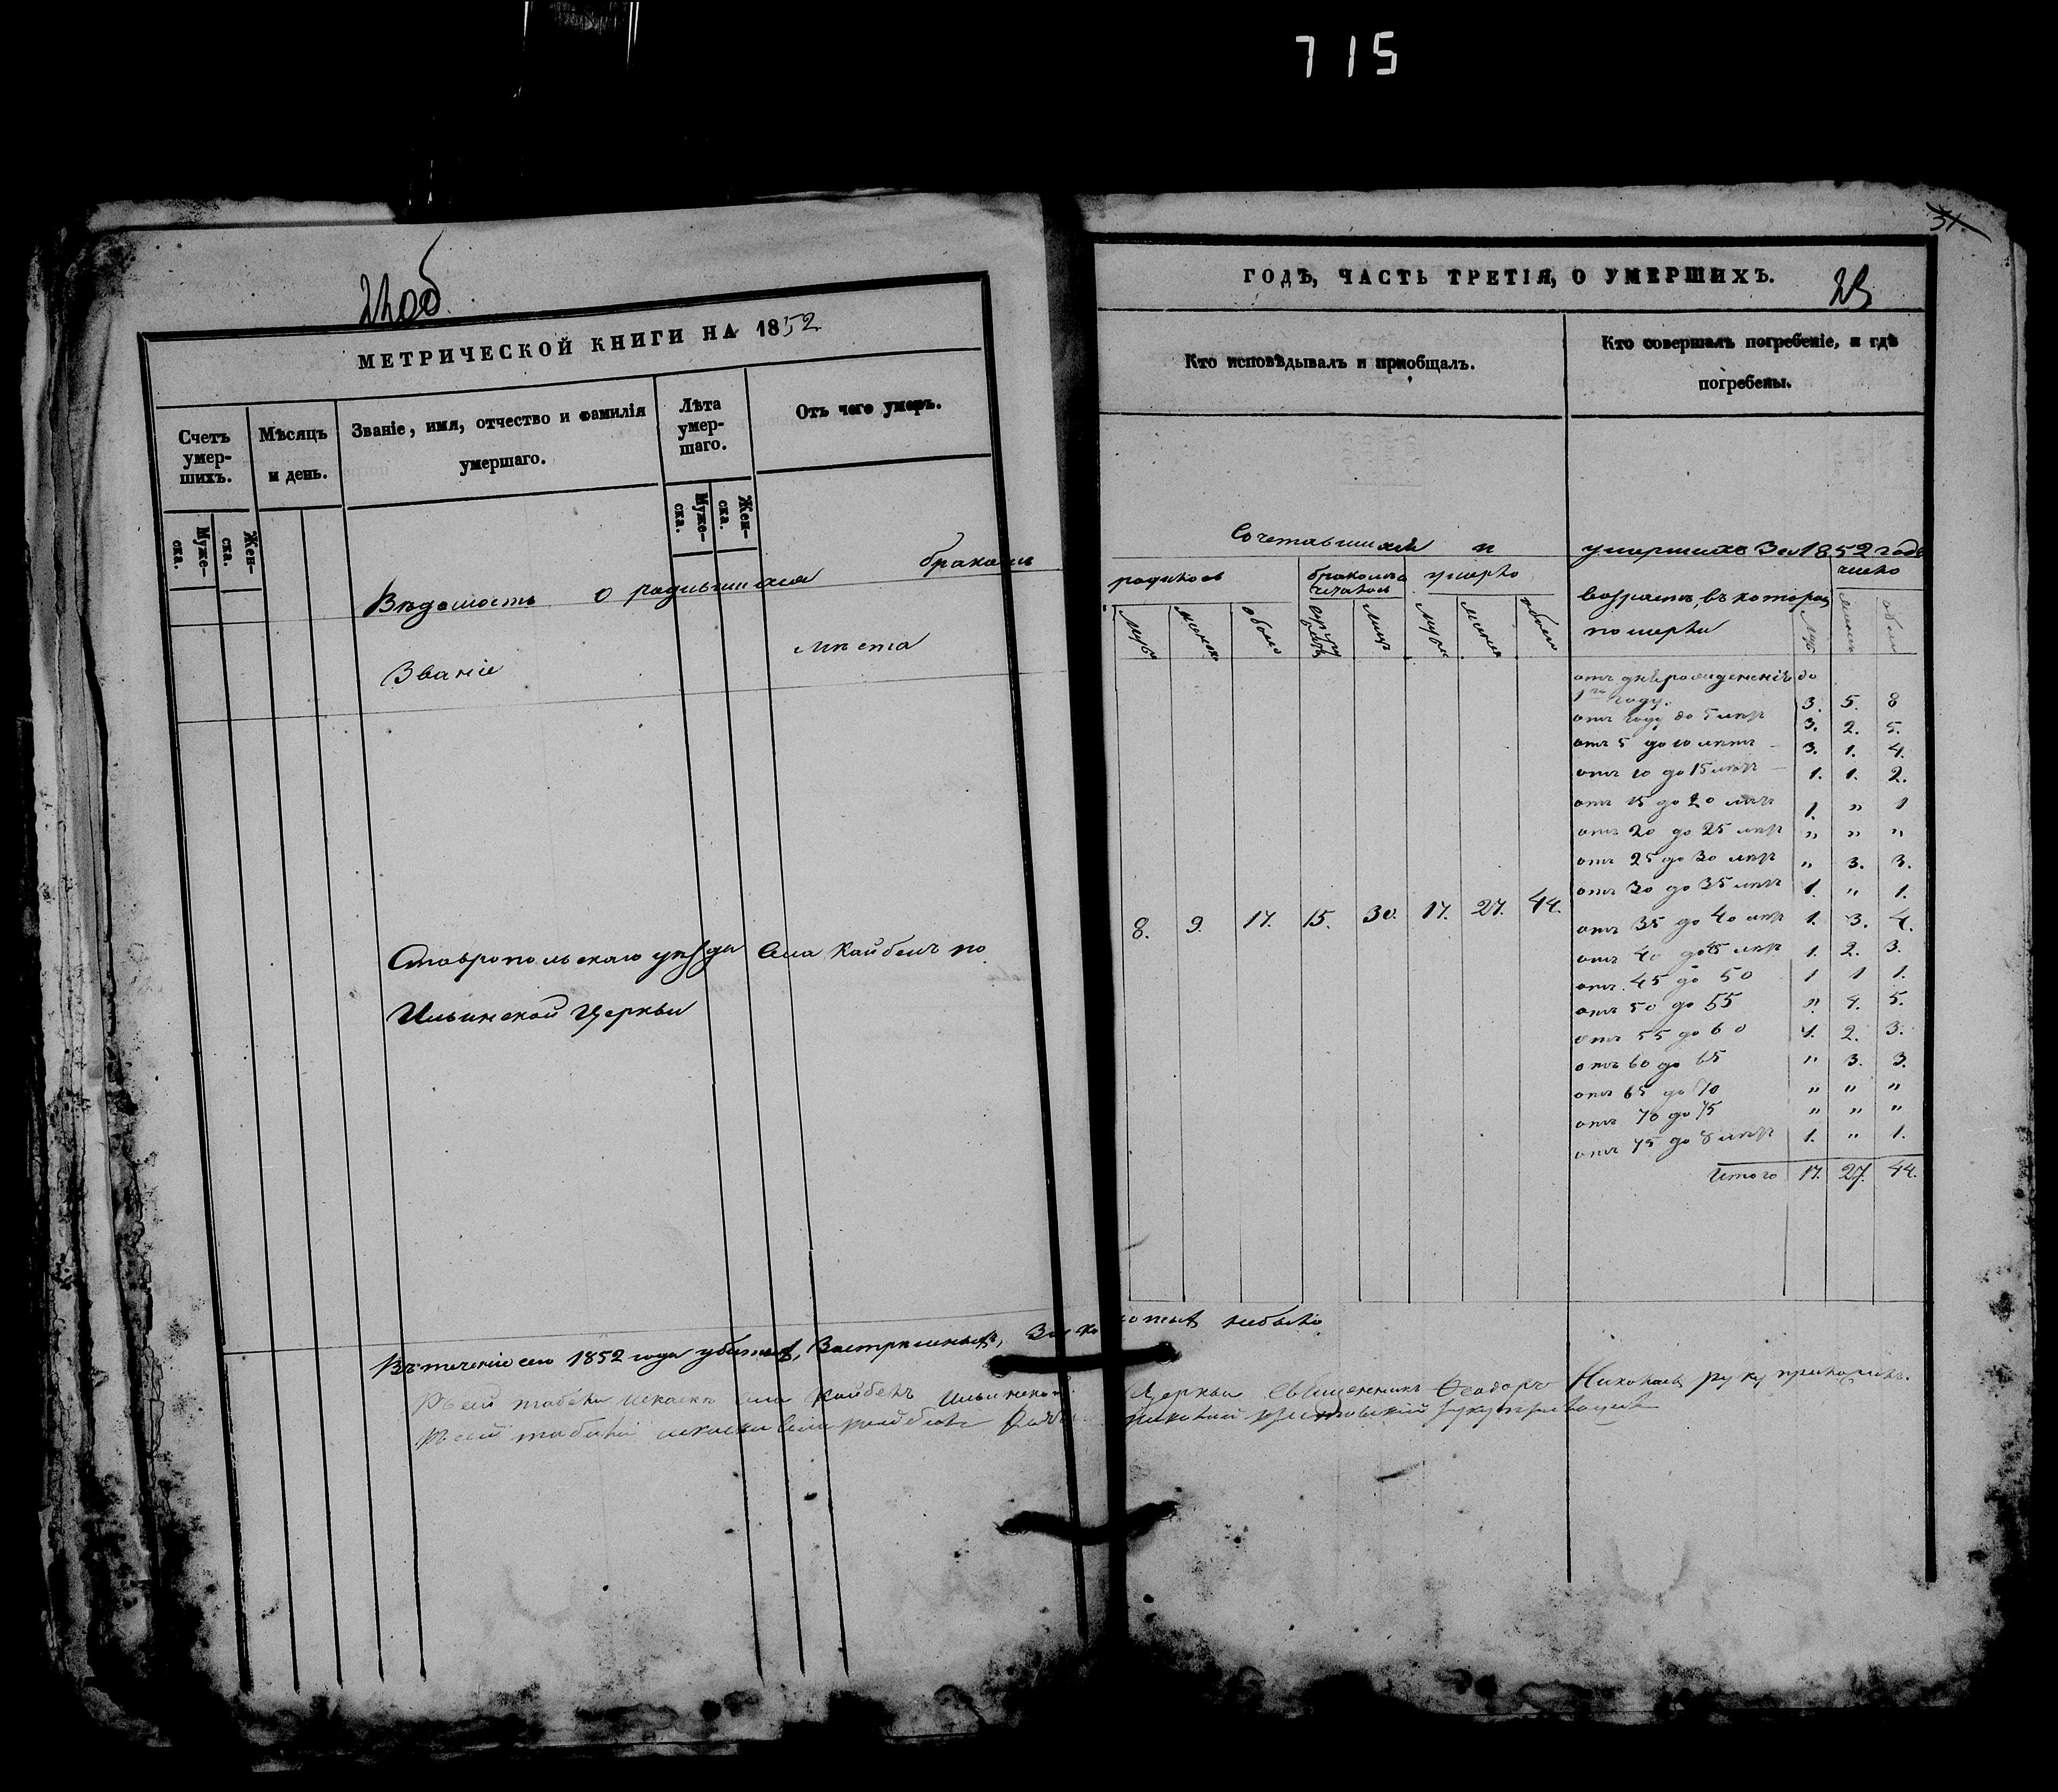 715
31.
22об
МЕТРИЧЕСКОЙ КНИГИ НА 1852
Счетъ умер-шихъ.
Муже-ска.
Жен-ска.
Мѣсяцъ и день.
Званіе, имя, отчество и фамилія умершаго.
Лѣта умер-шаго.
Муже-ска.
Жен-ска.
Отъ чего умеръ.
Вѣдомость о родившихся бракомъ
Званіе мѣста
Ставропольскаго уѣзда Села Кайбелъ по
Ильинской Церкви
ГОДЪ, ЧАСТЬ ТРЕТІЯ, О УМЕРШИХЪ.
23
Кто исповѣдывалъ и пріобщалъ.
Кто совершалъ погребеніе, и гдѣ погребены.
Сочетавшихся и умершихъ За 1852 годъ
родилось
бракомъ
умерло
число
возрастъ, въ котором
померли
отъ дня рожденія до
1го году. 3. 5. 8
отъ году до 5 лѣтъ 3. 2. 5.
отъ 5 до 10 лѣтъ 3. 1. 4.
отъ 10 до 15 лѣтъ 1. 1. 2.
отъ 15 до 20 лѣтъ 1. " 1
отъ 20 до 25 лѣтъ " " "
отъ 25 до 30 лѣтъ " 3. 3.
отъ 30 до 35 лѣтъ 1. " 1.
8. 9. 17. 15. 30. 17. 27. 44.
отъ 35 до 40 лѣтъ 1. 3. 4.
отъ 40 до 45 лѣтъ 1. 2. 3.
отъ 45 до 50 1 1 1.
отъ 50 до 55 " 4. 5.
отъ 55 до 60 1. 2. 3.
отъ 60 до 65 " 3. 3.
отъ 65 до 70 " " "
отъ 70 до 75 " " "
отъ 75 до 8 лѣтъ 1. " 1.
Итого 17. 27. 44.
Въ теченіе сего 1852 года убитыхъ, Застрѣленныхъ, небыло
Къ сей табели села Кайбелъ Ильинской Церкви Священникъ Ѳеодоръ Николаевъ руку приложилъ.
Къ сей табели села Кайбелъ руку приложилъ